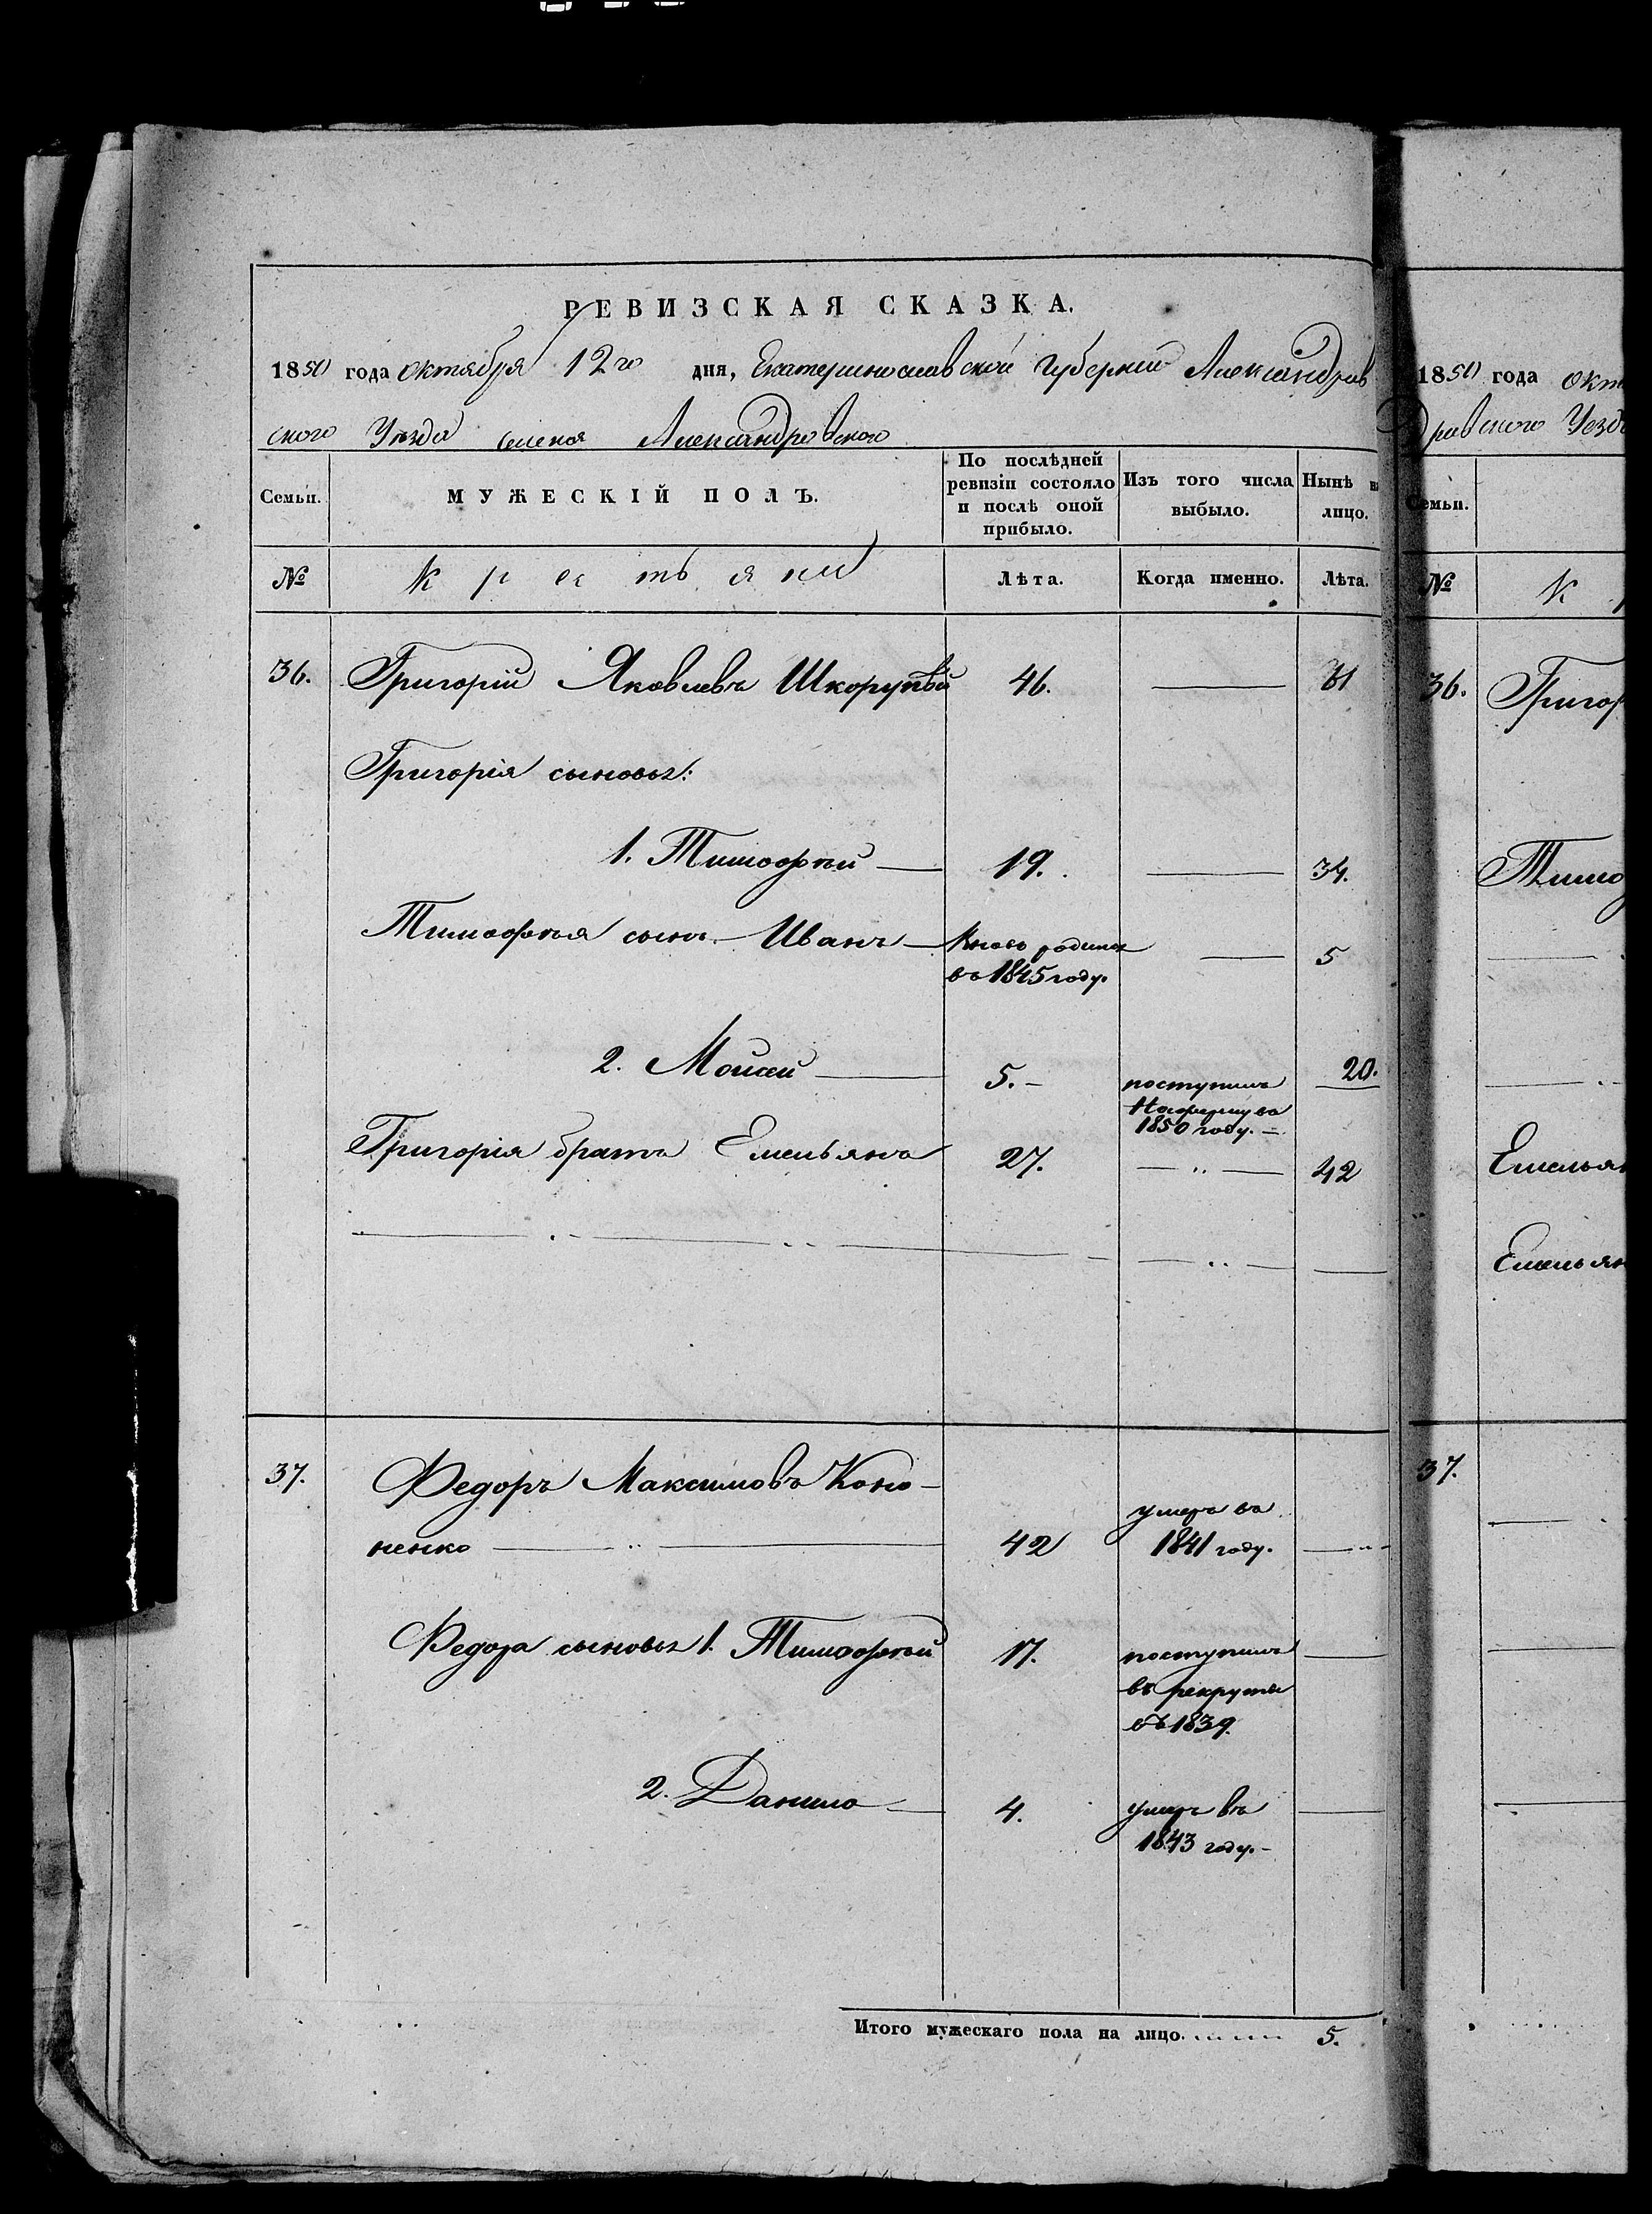 РЕВИЗСКАЯ СКАЗКА.
1850 года октября 12го дня, Екатеринославской Губернии Александров
ского Уезда Александровского
Семьи. МУЖЕСКІЙ ПОЛЪ. По послѣдней ревизіи состояло и послѣ оной прибыло. Изъ того числа выбыло. Нынѣ на лицо.
№ Крестьяни Лѣта. Когда именно. Лѣта.
36. Григорій Яковлевъ 46. — 61
Григорія сыновья:
1. Тимофѣй — 19. — 34.
Тимофѣя сынъ — Иванъ — родился — 5
въ 1845 году.
2. Мойсей — 5. – поступилъ 20.
1850 году. –
Григорія братъ Емельянъ 27. — 42
37. Федоръ Максимовъ Коно-
ненко — 42 умеръ въ
1841 году.
Федора сыновья 1. Тимофѣй 17. поступилъ —
въ рекруты
въ 1839.
2. Данило — 4. умеръ въ —
1843 году. –
Итого мужескаго пола на лицо. 5.
1850 года окт
дровского Уезд
Семьи.
№ К
36. Григор
Тимо
Емельян
Емельян
37.